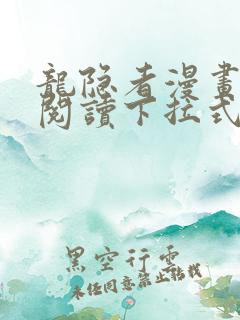 龍隐者漫畫
閱讀下拉式
黑空行雲
未经同意禁止轉載